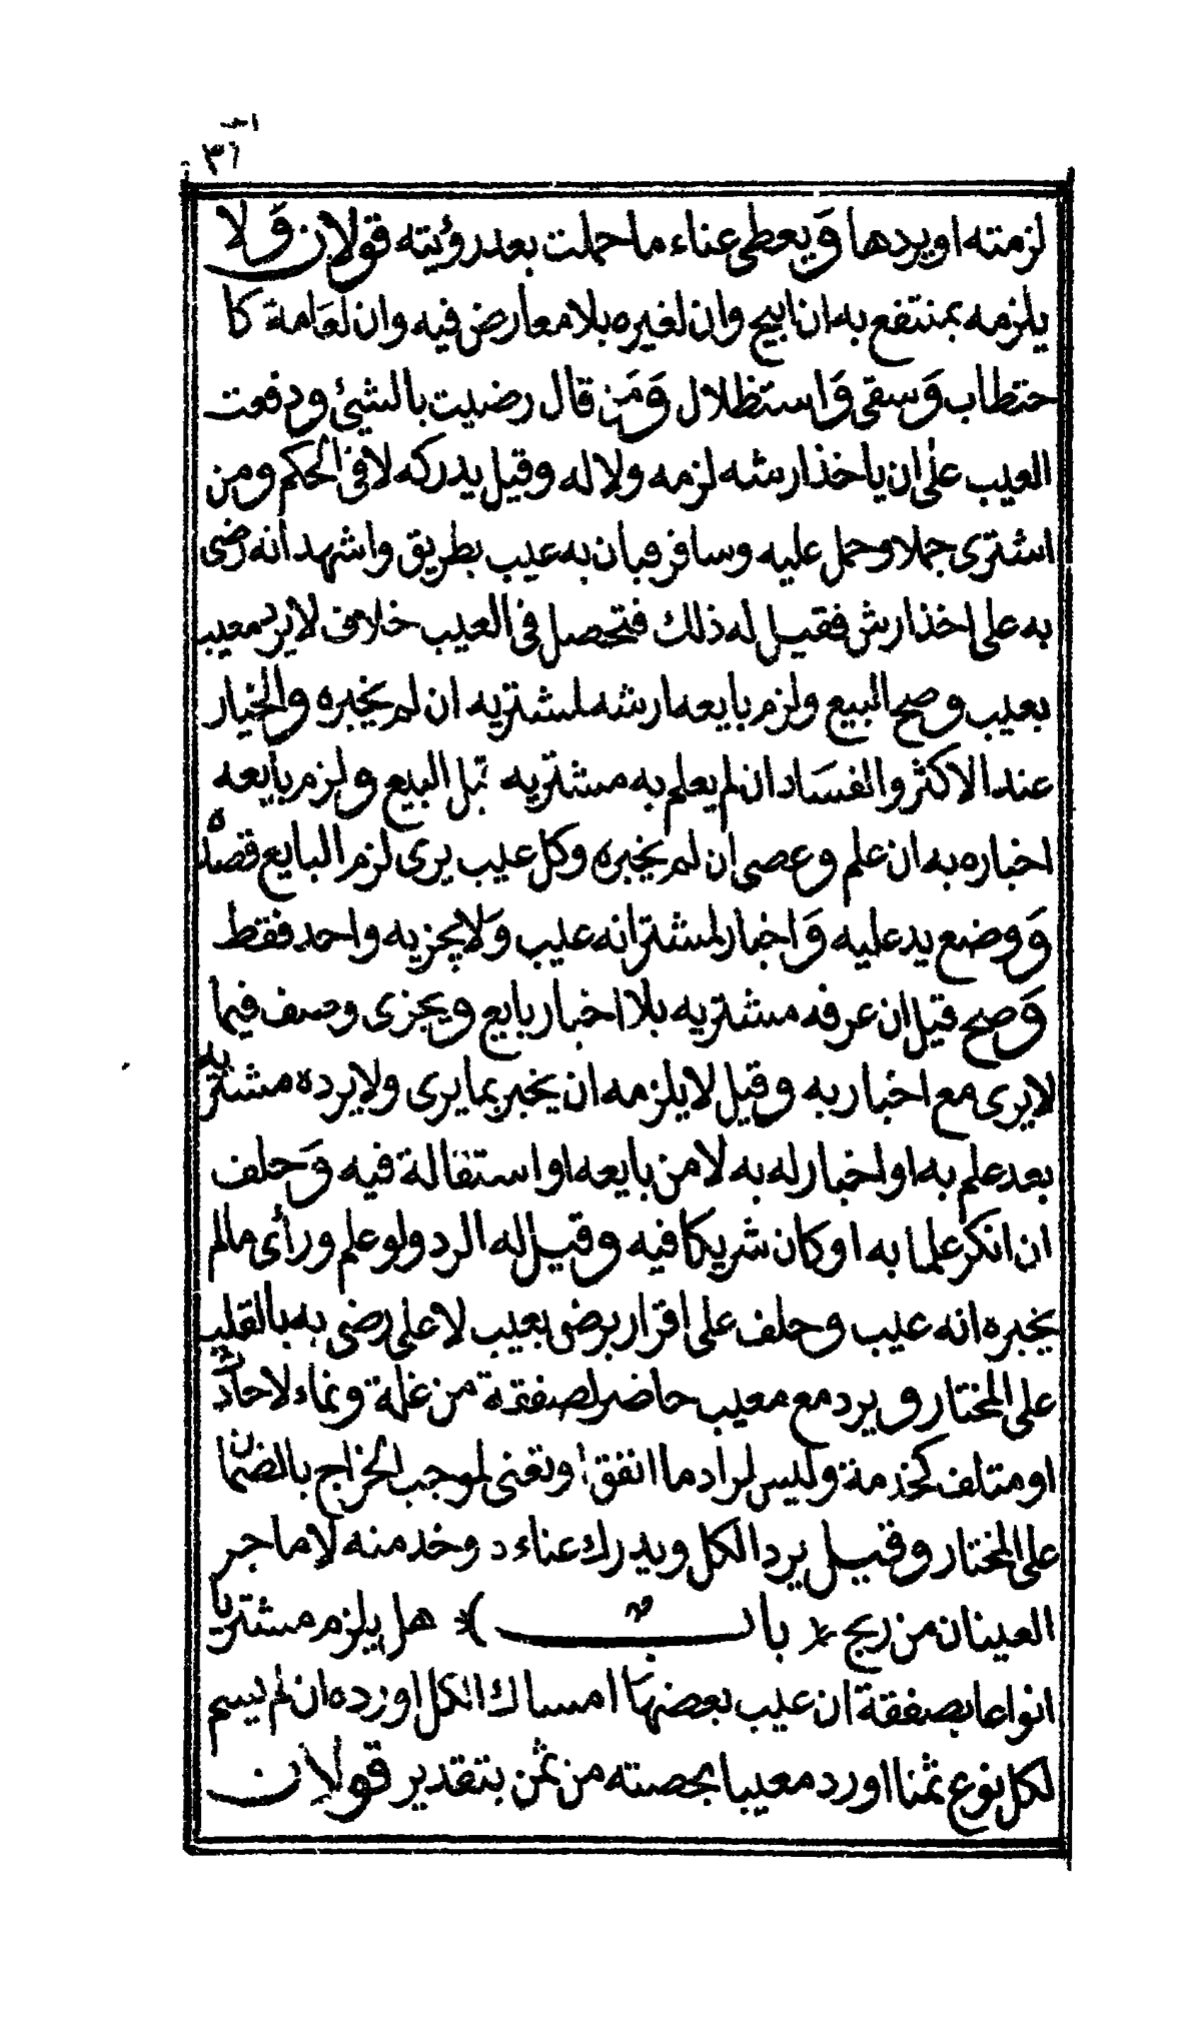 ٣٦
لزمته او يردها ويعطى عناء ما حملت بعد رؤيته قولان ولا
يلزمه بمنتفع به ان ابيح وان لغيره بلا معارض فيه وان لعامة كا
حتطاب وسقى واستظلال ومن قال رضيت بالشئ ودفعت
العيب على ان ياخذ ارشه لزمه ولا له وقيل يدركه لا فى الحكم ومن
اشترى جملا وحمل عليه وسافر فبان به عيب بطريق واشهد انه رضى
به على اخذ ارش فقيل له ذلك فتحصل فى العيب خلاف لا يرد معيب
بعيب وصح البيع ولزم بايعه ارشه لمشتريه ان لم يخبره والخيار
عند الاكثر والفساد ان لم يعلم به مشتريه قبل البيع ولزم بايعه
اخباره به ان علم وعصى ان لم يخبره وكل عيب يرى لزم البايع قصده
ووضع يد عليه واخبار لمشتر انه عيب ولا يجزيه واحد فقط
وصح قيل ان عرفه مشتريه بلا اخبار بايع ويجزى وصف فيما
لا يرى مع اخبار به وقيل لا يلزمه ان يخبر بما يرى ولا يرده مشتريه
بعد علم به او اخبار له به لا من بايعه او استقالة فيه وحلف
ان انكر علما به او كان شريكا فيه وقيل له الرد ولو علم ورأى مالم
يخبره انه عيب وحلف على اقرار برضى بعيب لا على رضى به بالقلب
على المختار ويرد مع معيب حاضر لصفقة من غلة ونماء لا حادث
او متلف كخدمة وليس لراد ما انفق او تعنى لموجب الخراج بالضمان
على المختار وقيل يرد الكل ويدرك عناءه وخدمنه لا ما جر
العينان من ريح باب هل يلزم مشتريا
انواعا بصفقة ان عيب بعضها امساك الكل اورده ان لم يسم
لكل نوع ثمنا اورد معيبا بحصته من ثمن بتقدير قولان